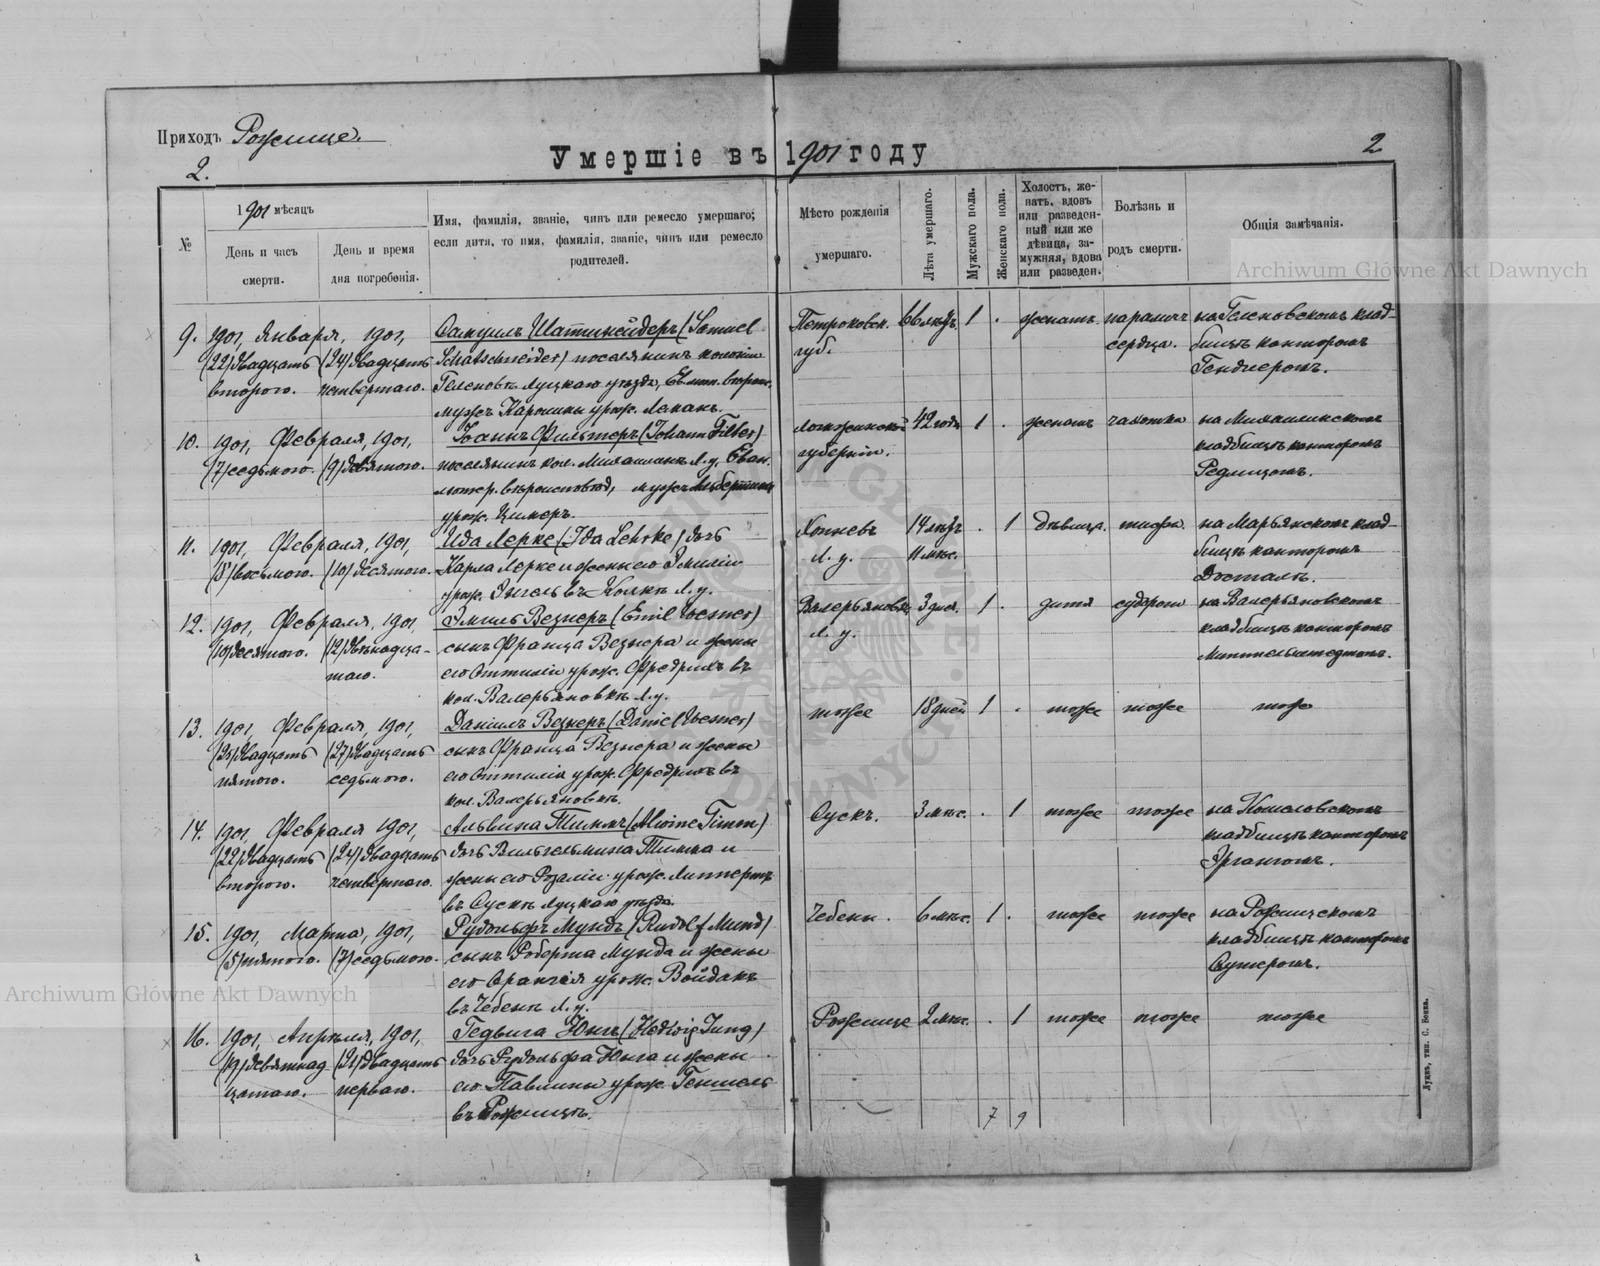 Приходъ Рожище.
2.
Умершіе въ 1901 году
2
№
1901 мѣсяцъ
День и часъ
смерти.
День и время
дня погребенія.
Имя, фамилія, званіе, чинъ или ремесло умершаго;
если дитя, то имя, фамилія, званіе, чинъ или ремесло
родителей.
Мѣсто рожденія
умершаго.
Лѣта умершаго.
Мужскаго пола.
Женскаго пола.
Холостъ, же-
натъ, вдовъ
или разведен-
ный или же
дѣвица, за-
мужняя, вдова
или разведен.
Болѣзнь и
родъ смерти.
Общія замѣчанія.
Archiwum Główne Akt Dawnych
9. 1901, Января, 1901, Самуилъ Шатшнейдеръ (Samuel Петроковск. 66 лѣтъ 1 . женатъ параличъ на Геленовскомъ клад-
(22) двадцать (24) двадцать Schatschneider) поселянинъ колоніи губ. сердца. бищѣ канторомъ
второго. четвертаго. Геленовъ Луцкаго уѣзда,
мужъ Каролины урож.
10. 1901, Февраля, 1901, Іоаннъ Фильтеръ (Johann Filter) 42 года 1 . женатъ чахотка на
(7) седьмого. (9) девятого. поселянинъ кол. Л. у. Еван. губерніи. кладбищѣ канторомъ
лютер. вѣроисповѣд, мужъ Альбертины
урож. Цилкеръ.
11. 1901, Февраля, 1901, Ида Лерке (Ida Lehrke) дочь 14 лѣтъ . 1 дѣвица. тифъ. на Марьянскомъ клад-
(8) восьмого. (10) десятого. Карла Лерке и жены его Эмиліи Л. у. 11 мѣс. бищѣ канторомъ
урож. Л. у.
12. 1901, Февраля, 1901, Эмиль Везнеръ (Emil Wesner) Валерьяновка 3 дня. 1 . дитя судороги на Валерьяновскомъ
(10) десятого. (12) двѣнадца- сынъ Франца Везнера и жены Л. у. кладбищѣ канторомъ
таго. его Оттиліи урож. Фредрихъ въ
кол. Валерьяновкѣ Л. у.
13. 1901, Февраля, 1901, Даніилъ Везнеръ (Daniel Wesner) тоже 18 дней 1 . тоже тоже тоже
(25) двадцать (27) двадцать сынъ Франца Везнера и жены
пятого. седьмого. его Оттиліи урож. Фредрихъ въ
кол. Валерьяновкѣ.
14. 1901, Февраля 1901, Альвина Тиммъ (Alwine Timm) Сускъ. 3 мѣс. . 1 тоже тоже на
(22) двадцать (24) двадцать дочь Вильгельма Тимма и кладбищѣ канторомъ
второго. четвертаго. жены его Розаліи урож.
въ Сускѣ Луцкаго уѣзда.
15. 1901, Марта, 1901, Рудольфъ Мундъ (Rudolf Mund) Чебени. 6 мѣс. 1 . тоже тоже на Рожищскомъ
(5) пятого. (7) седьмого. сынъ Роберта Мунда и жены кладбищѣ канторомъ
его урож. Войдакъ
въ Чебени Л. у.
Archiwum Główne Akt Dawnych
16. 1901, Апрѣля, 1901, Гедвига Юнгъ (Hedwig Jung) Рожище 2 мѣс. . 1 тоже тоже тоже
(19) девятнад (21) двадцать дочь Рудольфа Юнга и жены
цатаго. перваго. его Павлины урож.
въ Рожищѣ.
7 9